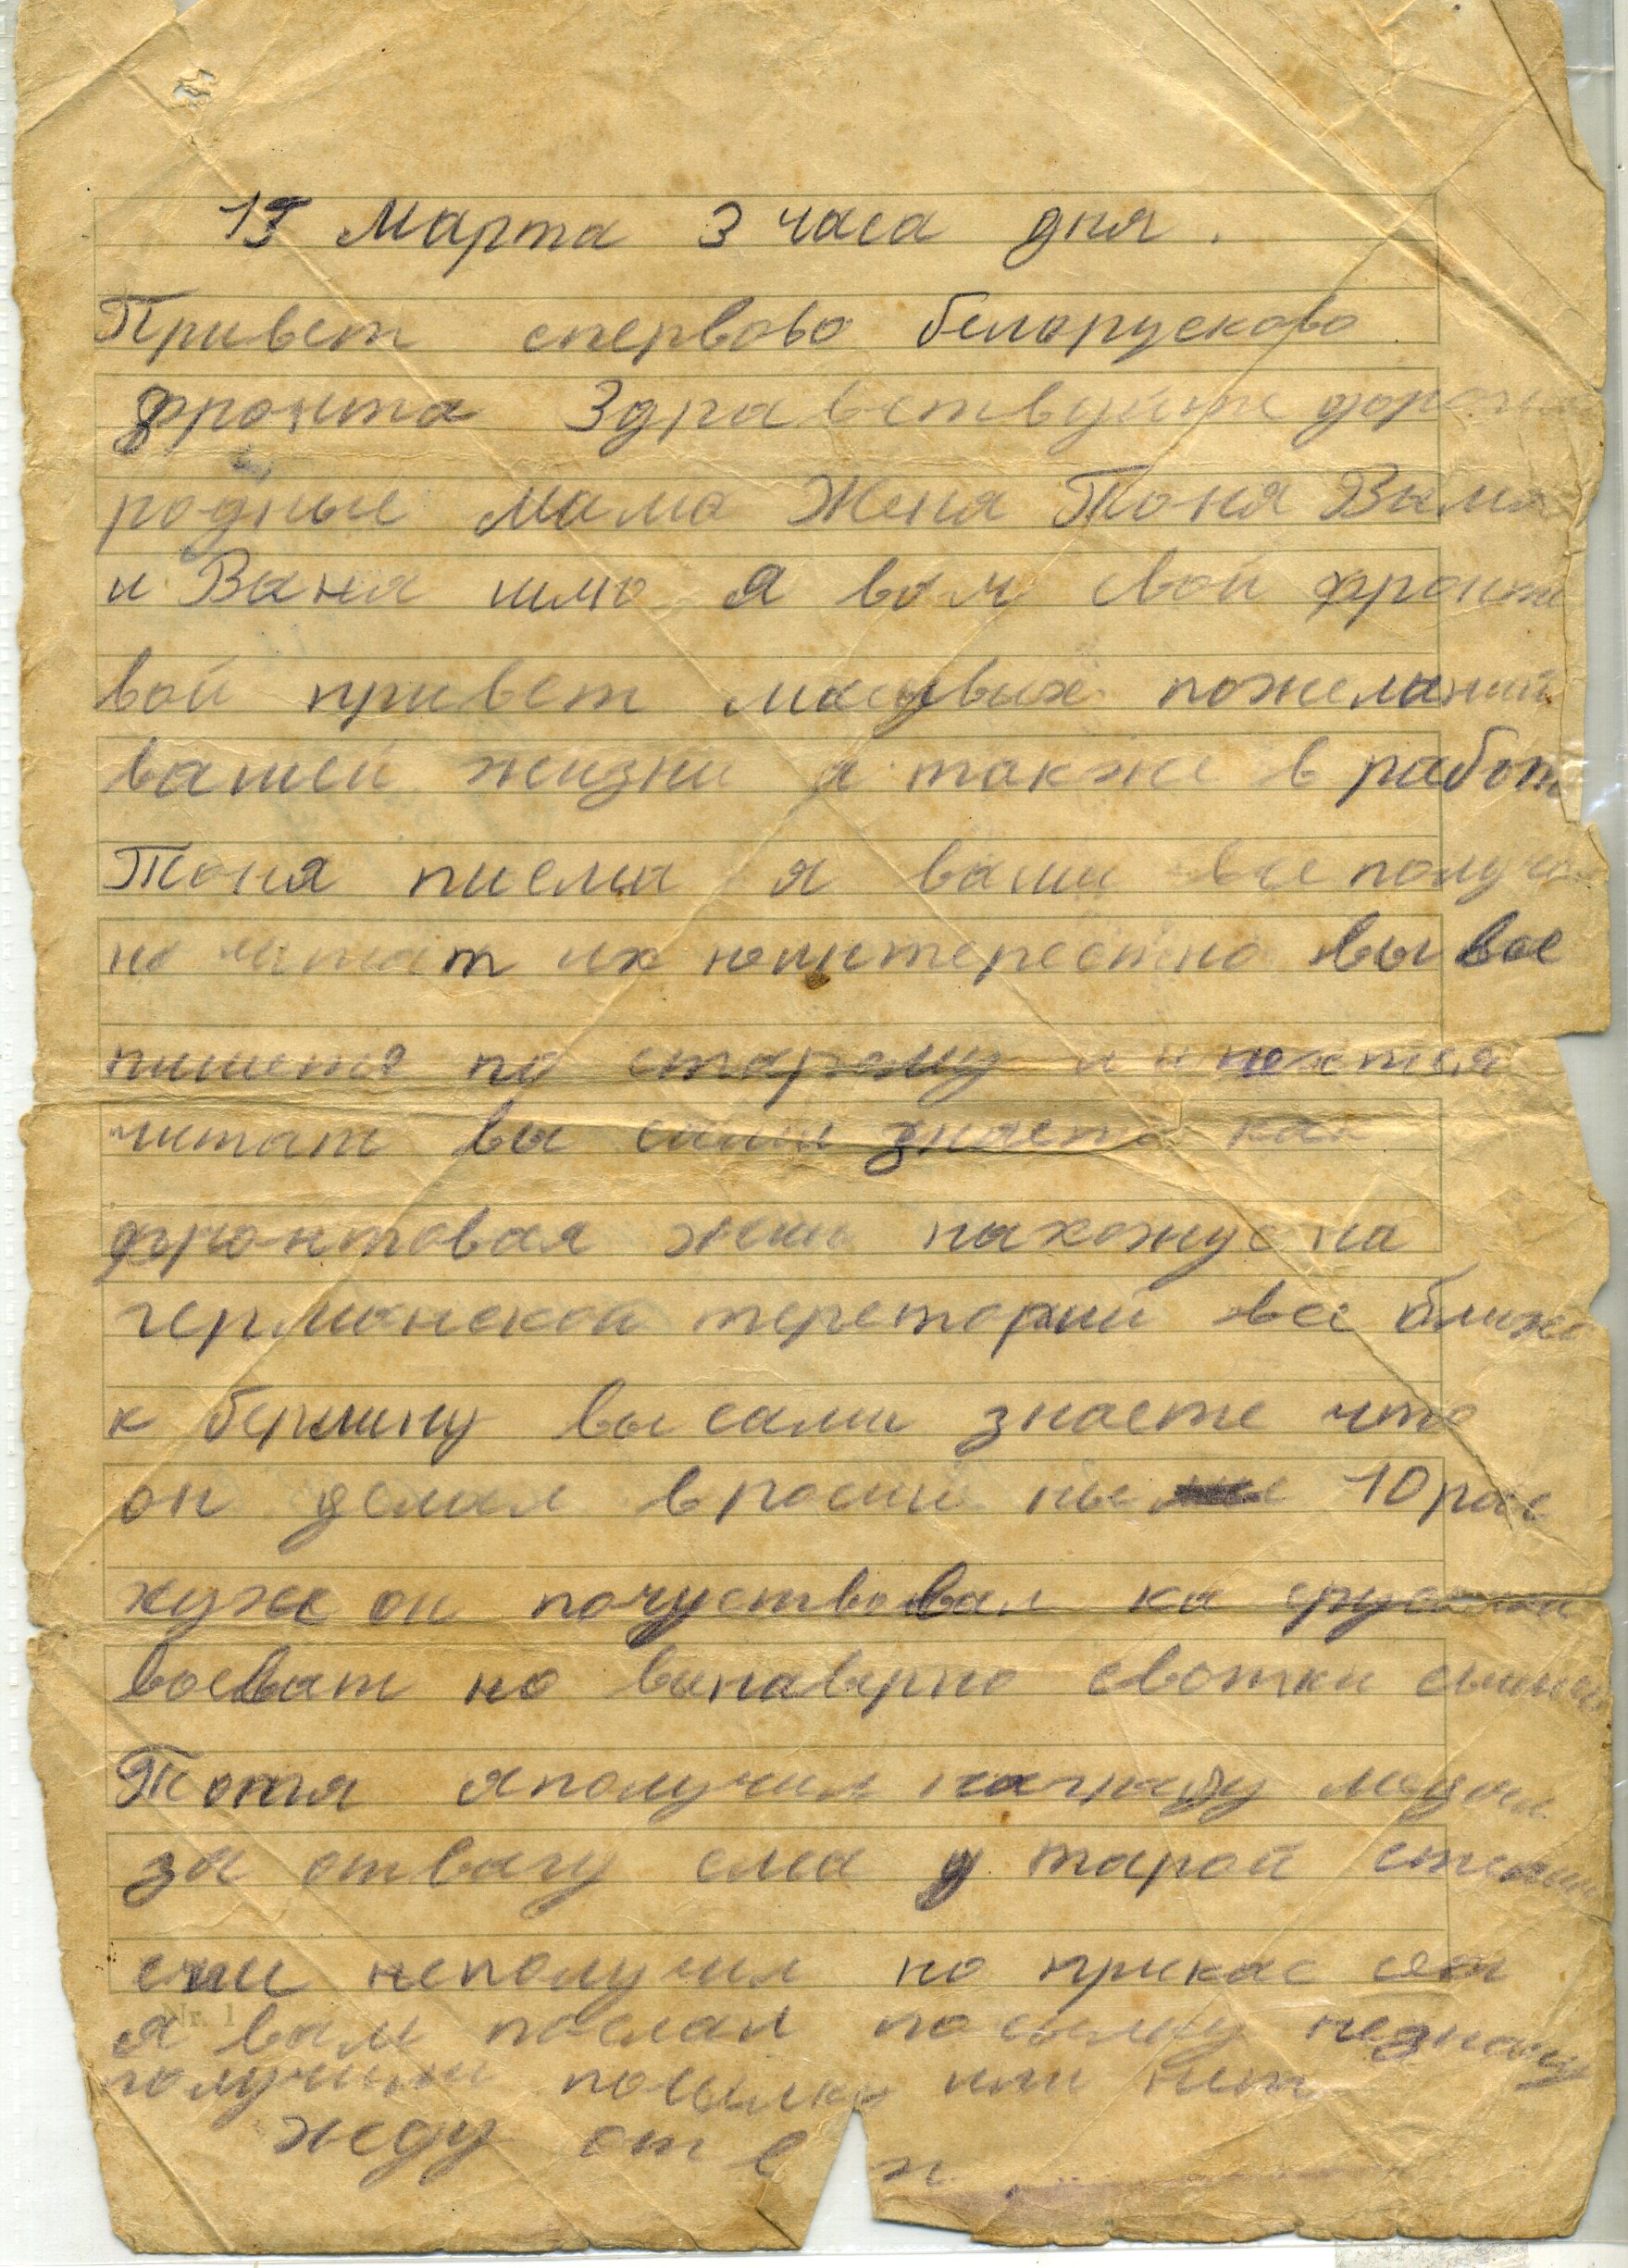 15 Марта 3 часа дня.
Привет сперво́во белорусково
фронта Здравствуйте дороги
родные Мама Женя Тоня Валя
и Ваня шлю я вам свой фронто
вой привет масивых пожеланий
вашей жизни а также в работ
Тоня писма я ваши все получил
но читат их неинтерестно вы все
пишите по старому и
читат вы сами знаете как
фронтовая жизн нахожус на
германской тереторий все ближе
к берлину вы сами знаете что
он делал в росии 10 рас
хуже он почуствовал ка срусскими
воеват но сводки
Тоня я получил награду медал
за отвагу слава тарой степени
еши неполучил но приказ ест
я вам послал посылку незнаю
получили посылку или нет
жеду от
Nr. 1